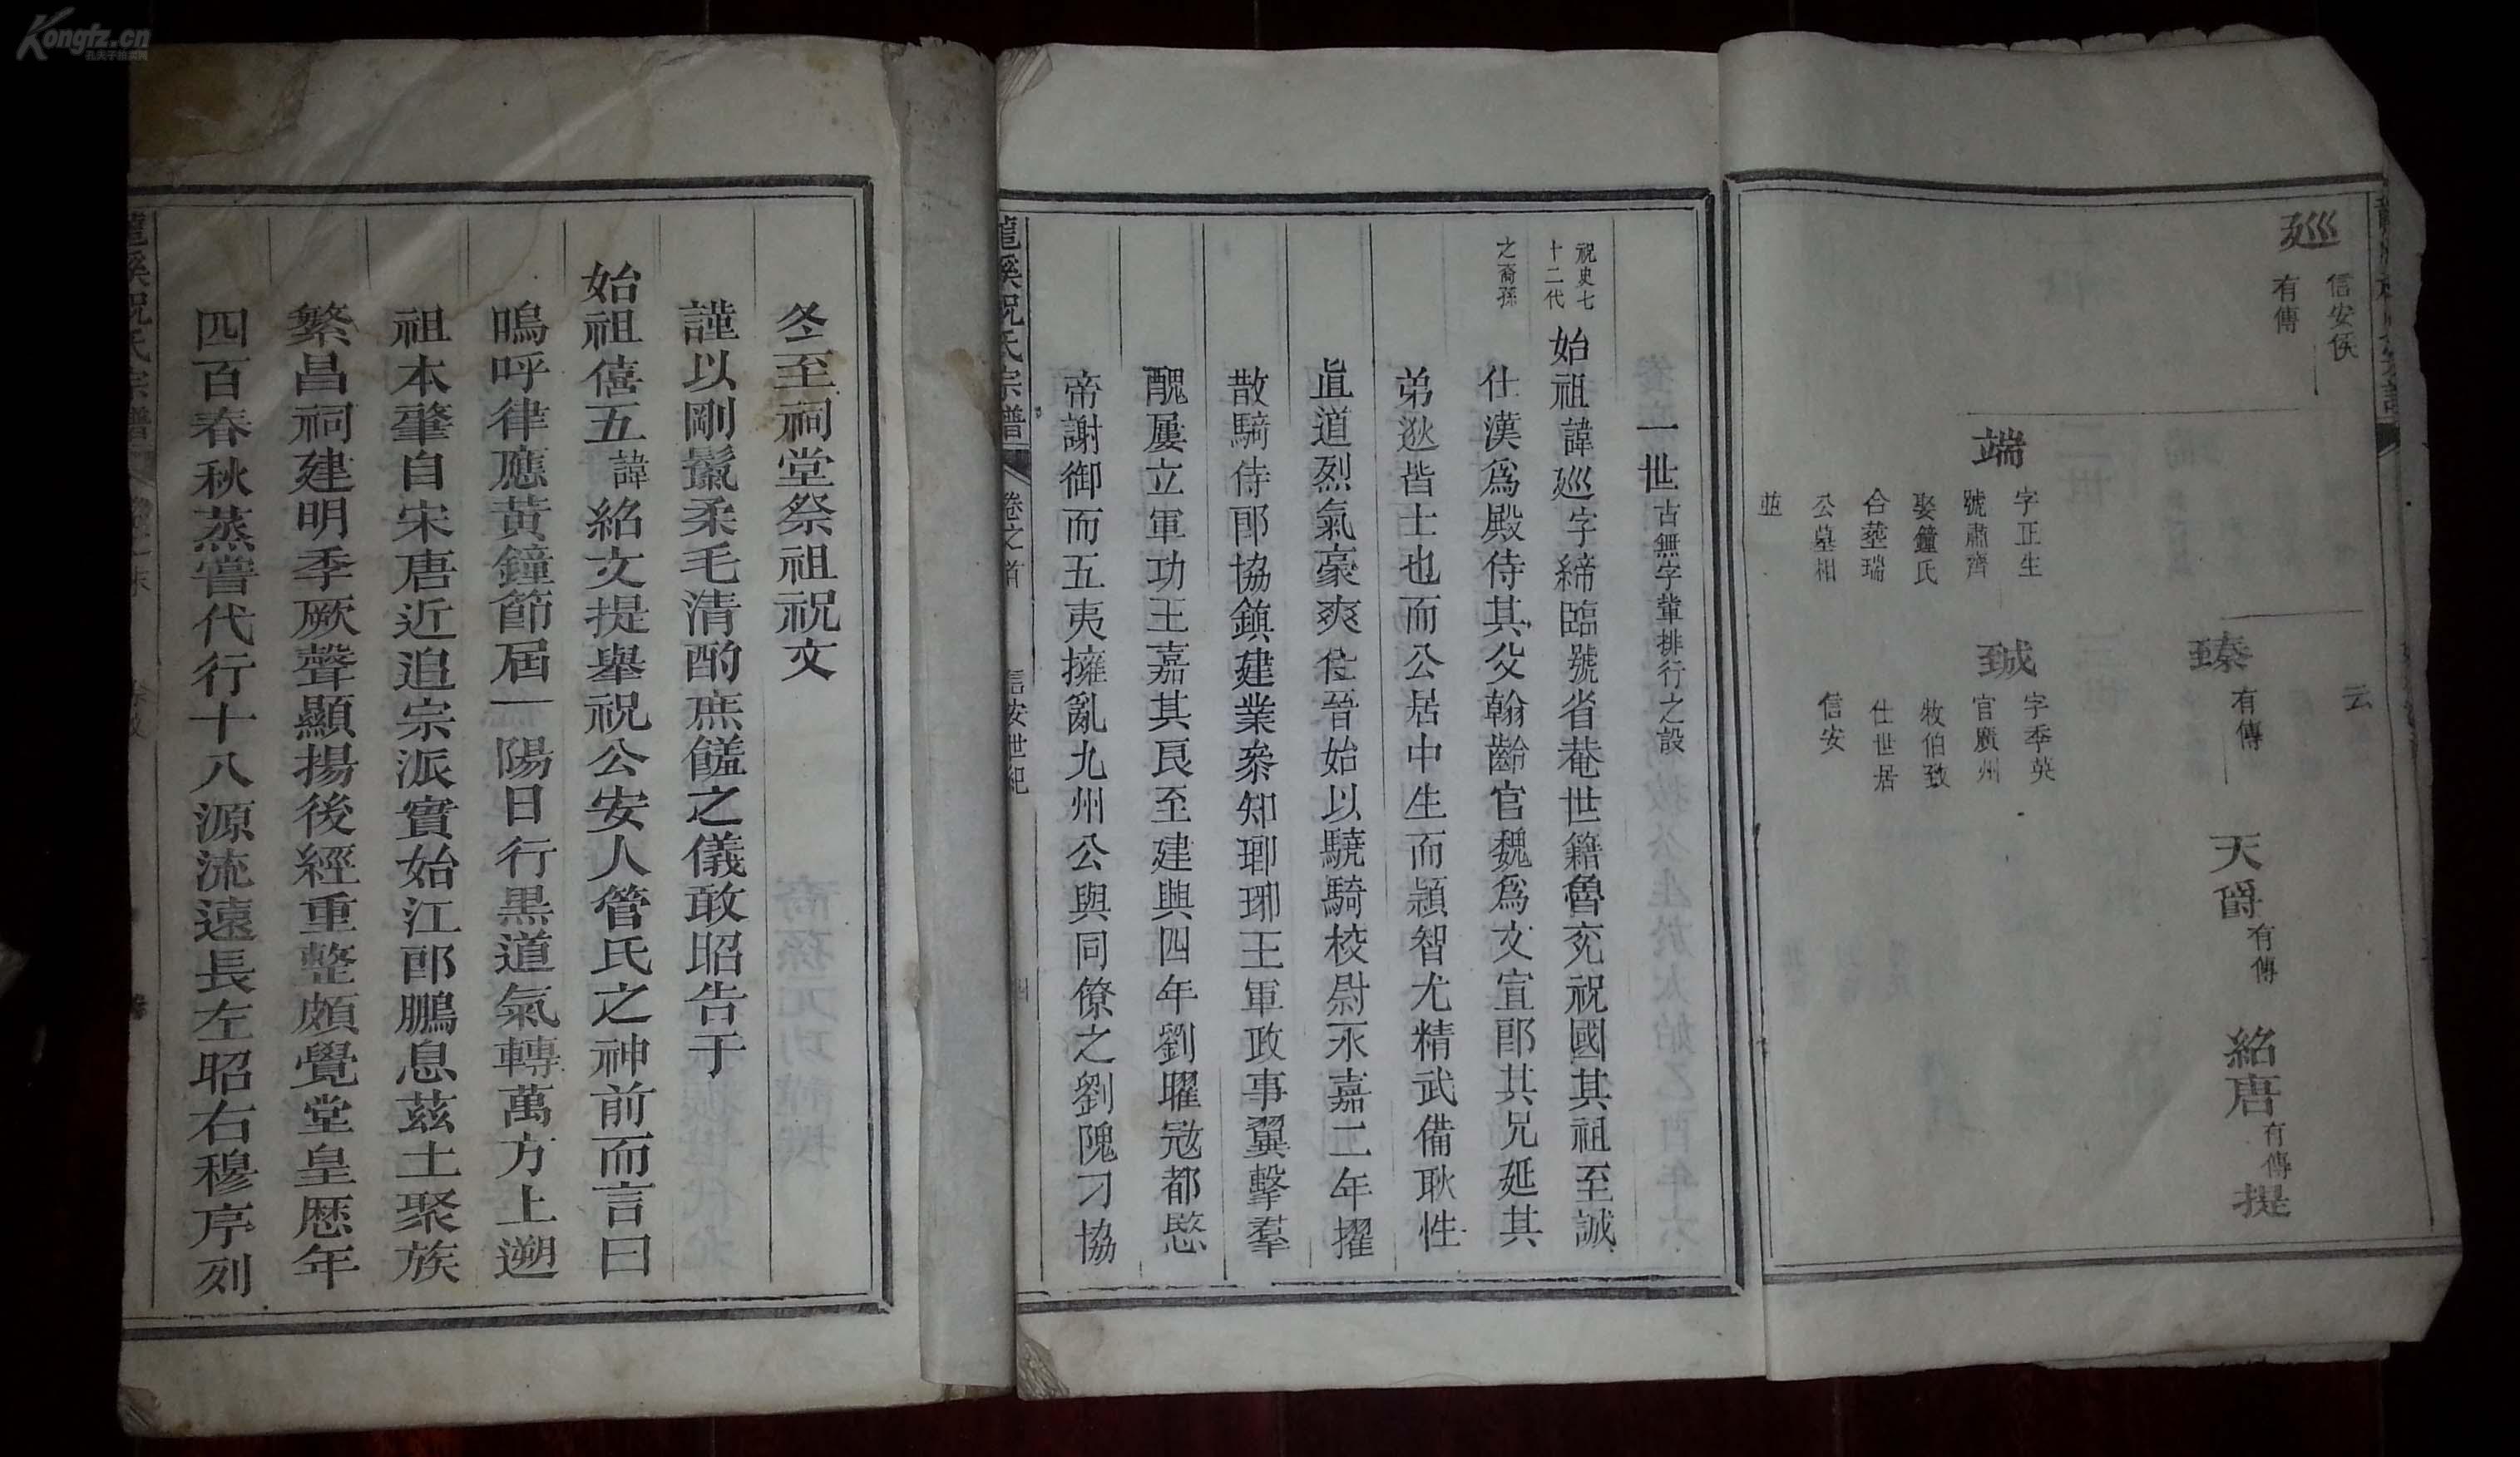 Kongfz.cn
廵
信安侯
有傳
端
字正生
號肅齊
娶鐘氏
合塟瑞
公墓相
並
臻
有傳
云
䤝
字季英
官廣州
牧伯致
仕世居
信安
天爵有傳
紹唐有傳
提
一世古無字軰排行之設
祝史七
十二代
之裔孫
始祖諱廵字締臨號省菴世籍魯兖祝國其祖至誠
仕漢爲殿侍其父翰齡官魏爲文宣郎其兄延其
弟逖皆士也而公居中生而頴智尤精武備耿性
直道烈氣豪爽仕晉始以驍騎校尉永嘉二年擢
散騎侍郎協鎮建業叅知瑯琊王軍政事翼擊羣
醜屢立軍功王嘉其艮至建興四年劉曜宼都愍
帝謝御而五夷擁亂九州公與同僚之劉隗刁協
龍溪祝氏宗譜
卷之首
信安世紀
冬至祠堂祭祖祝文
謹以剛鬣柔毛清酌庶饈之儀敢昭告于
始祖僖五諱紹文提舉祝公安人管氏之神前而言曰
嗚呼律應黃鐘節屆一陽日行黑道氣轉萬方上遡
祖本肇自宋唐近追宗派實始江郎鵬息茲土聚族
繁昌祠建明季厥聲顯揚後經重整頗覺堂皇歷年
四百春秋蒸嘗代行十八源流遠長左昭右穆序列
龍溪祝氏宗譜